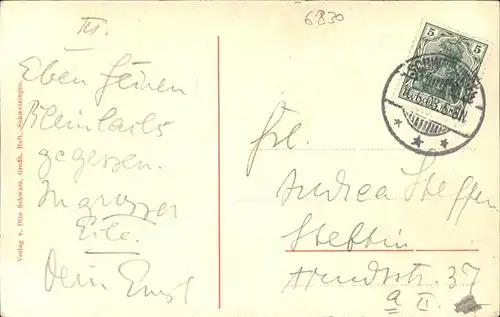 6830
III.
Eben feinen
gegessen.
In grosser
Eile.
Dein Ernst
5 5
Frl.
Andrea Steffen
Stettin
Arndtstr. 37
a II.
Verlag v. Otto Schwarz, Großh. Hofl., Schwetzingen.